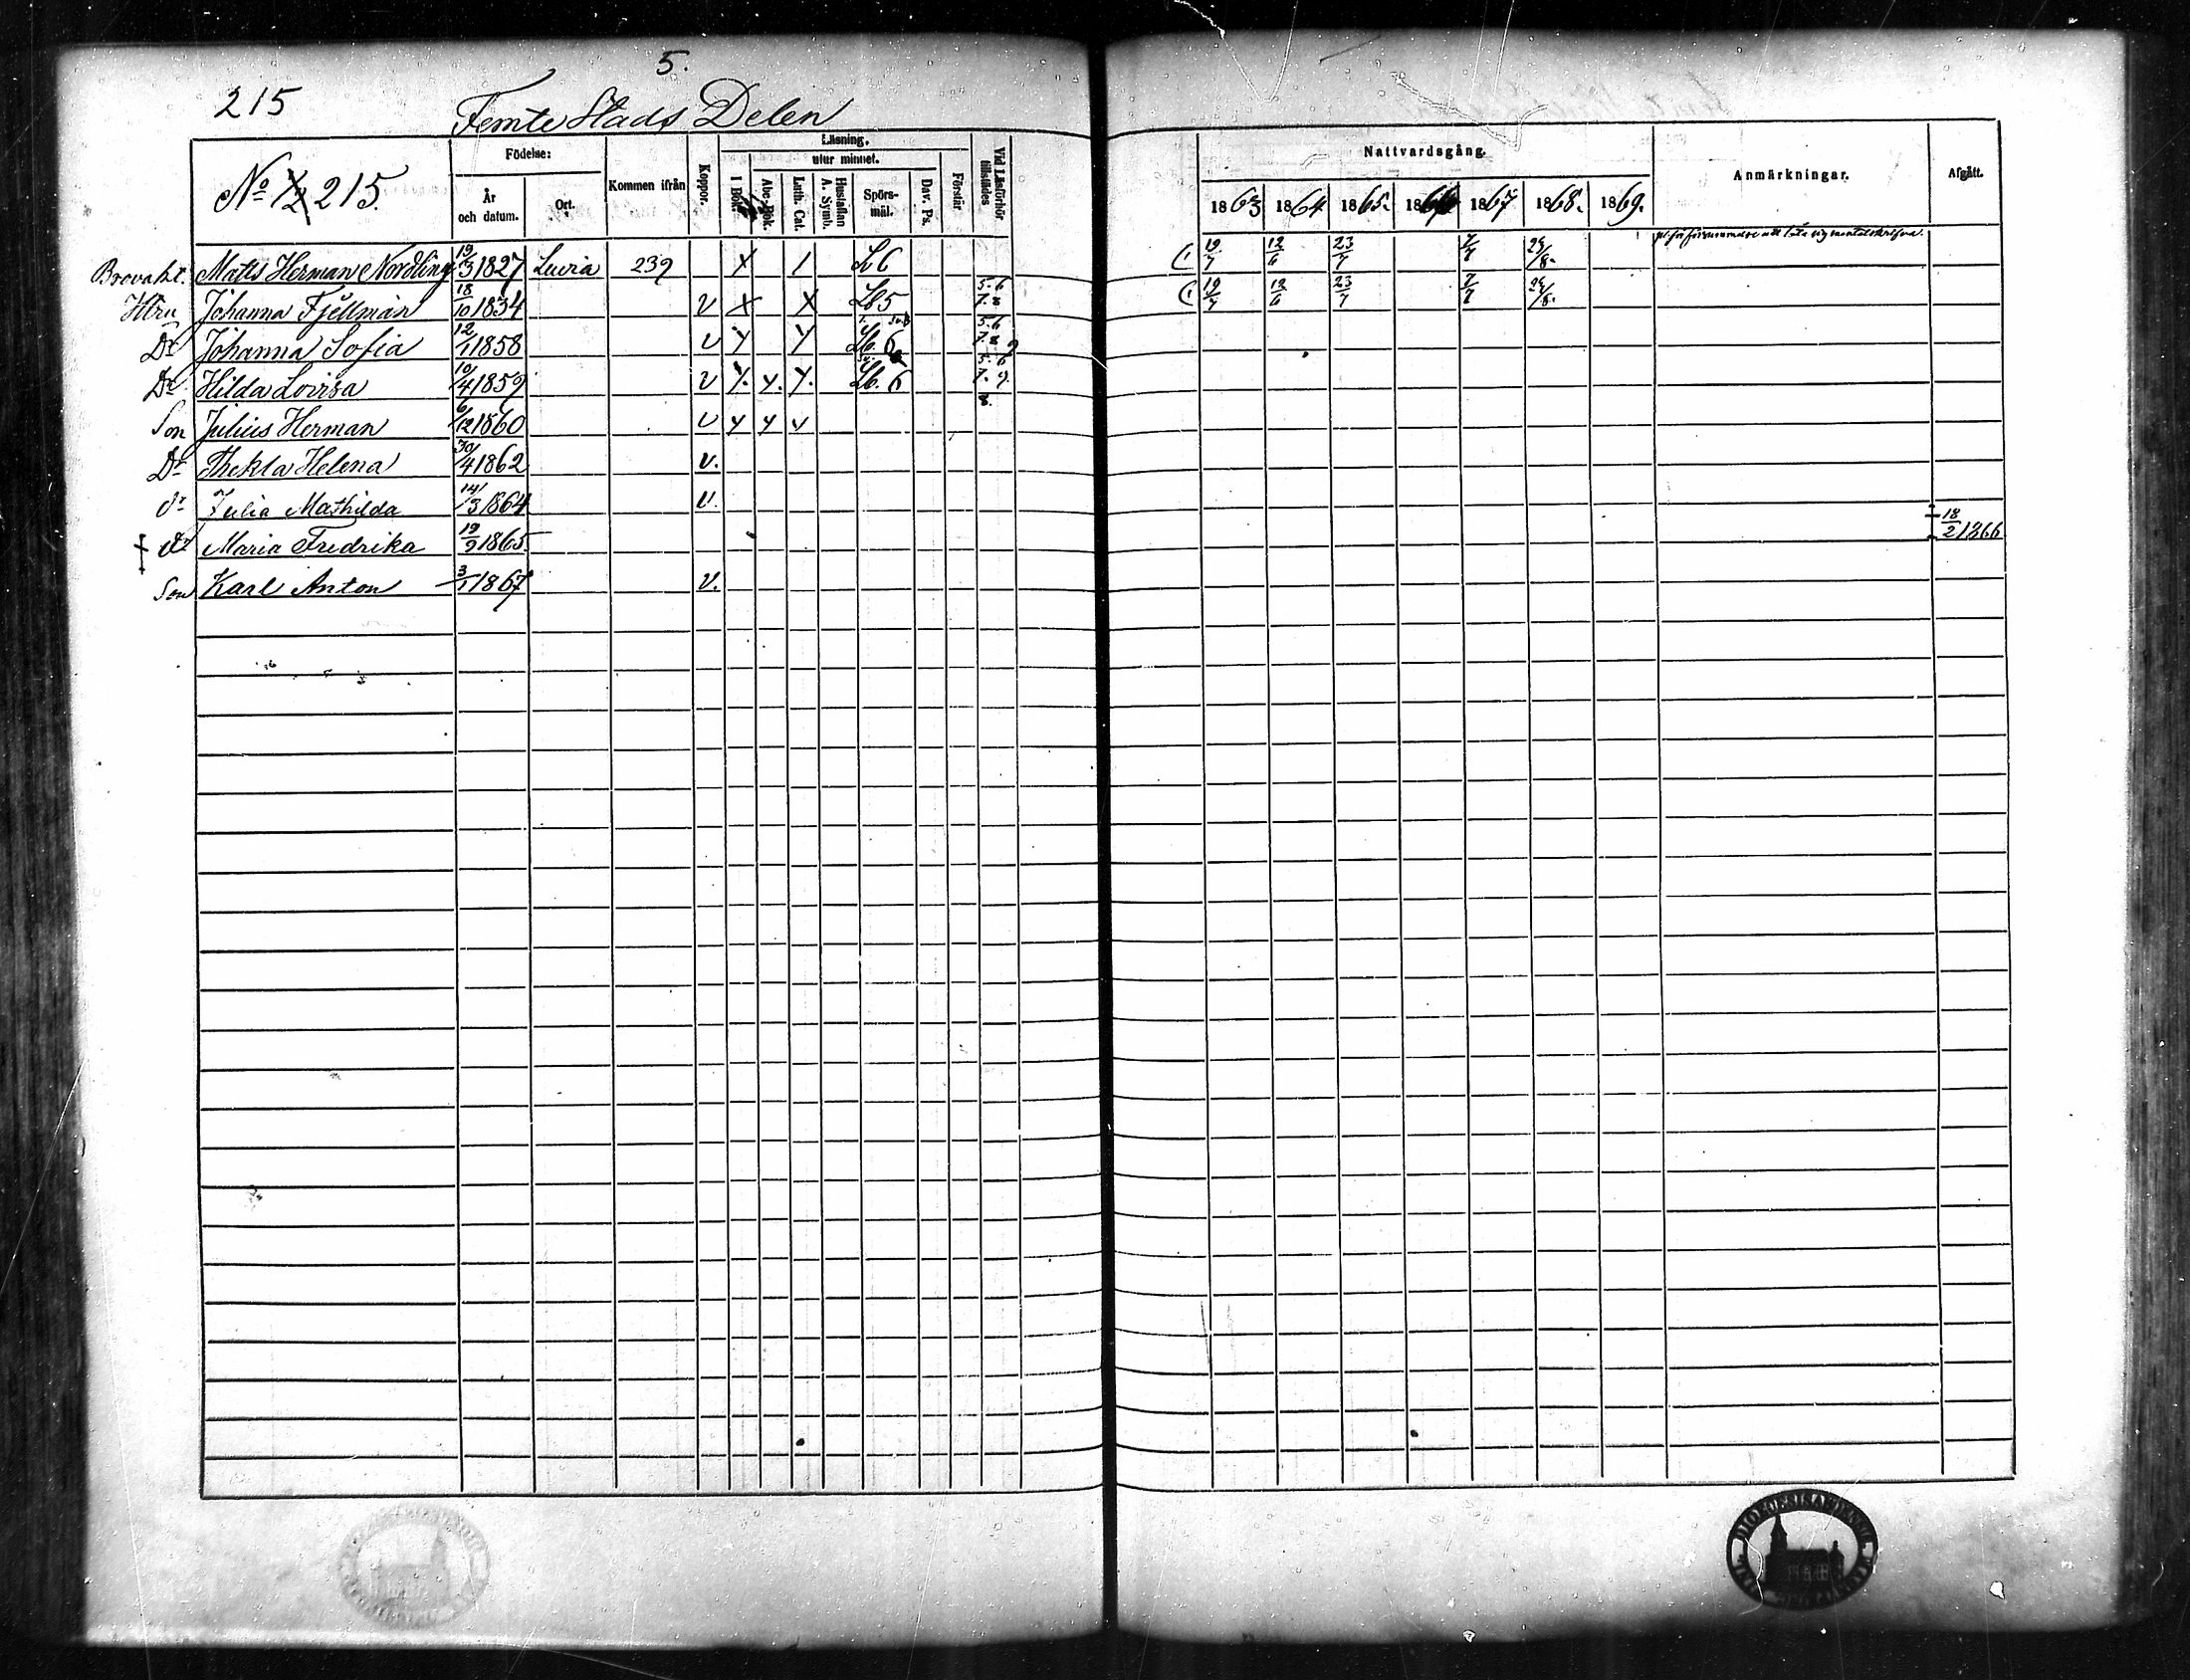 5.
215 Femte Stads Delen
No 215.
Födelse:
År och datum.
Ort.
Kommen ifrån
Koppor.
Läsning.
I Bok.
utur minnet.
Abc-Bok.
Luth. Cat.
Hustaflan A. Symb.
Spörsmål.
Dav. Ps.
Förstår
Vid Läsförhör tillstädes
Nattvardsgång.
1863 1864 1865. 1866 1867 1868. 1869.
Anmärkningar.
Afgått.
Brovakt. Matts Herman Nordling 19/3 1827 Luvia 239 X / Lb 6 19/7 12/6 23/7 7/7 24/8.
Hru Johanna Fjellman 18/10 1834 v X X Lb 5 5. 6 7. 8 19/7 12/6 23/7 7/7 24/8.
Dr Johanna Sofia 12/1 1858 v Y Y Lb. 6 5. 6 7. 8 9
Dr Hilda Lovisa 10/4 1859 v Y. Y. Y. Lb. 6 5. 6 7. 9. 8.
Son Julius Herman 6/12 1860 v Y Y Y
Dr Thekla Helena 30/4 1862 v.
dr Julia Mathilda 14/3 1864 v.
† dr Maria Fredrika 19/9 1865 † 18/2 1866
Son Karl Anton 3/1 1867 v.